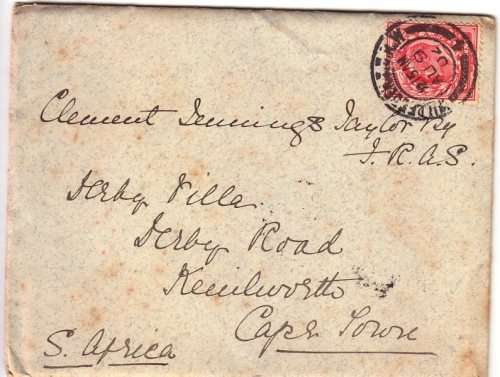 Clement Jennings Taylor Esq
F.R.A.S.
Derby Villa
Derby Road
Kenilworth
Cape Town
S. Africa